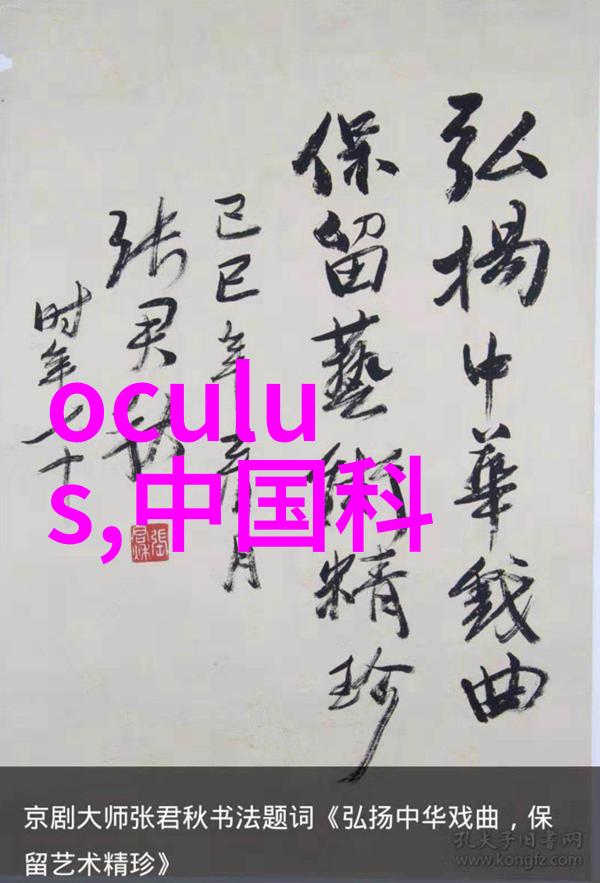 弘揚中華戏曲
保留藝術精珍
己巳年月
张君秋
时年七十
oculu
s,中国科
京剧大师张君秋书法题词《弘扬中华戏曲，保
留艺术精珍》
孔夫子旧书网
www.kongfz.com